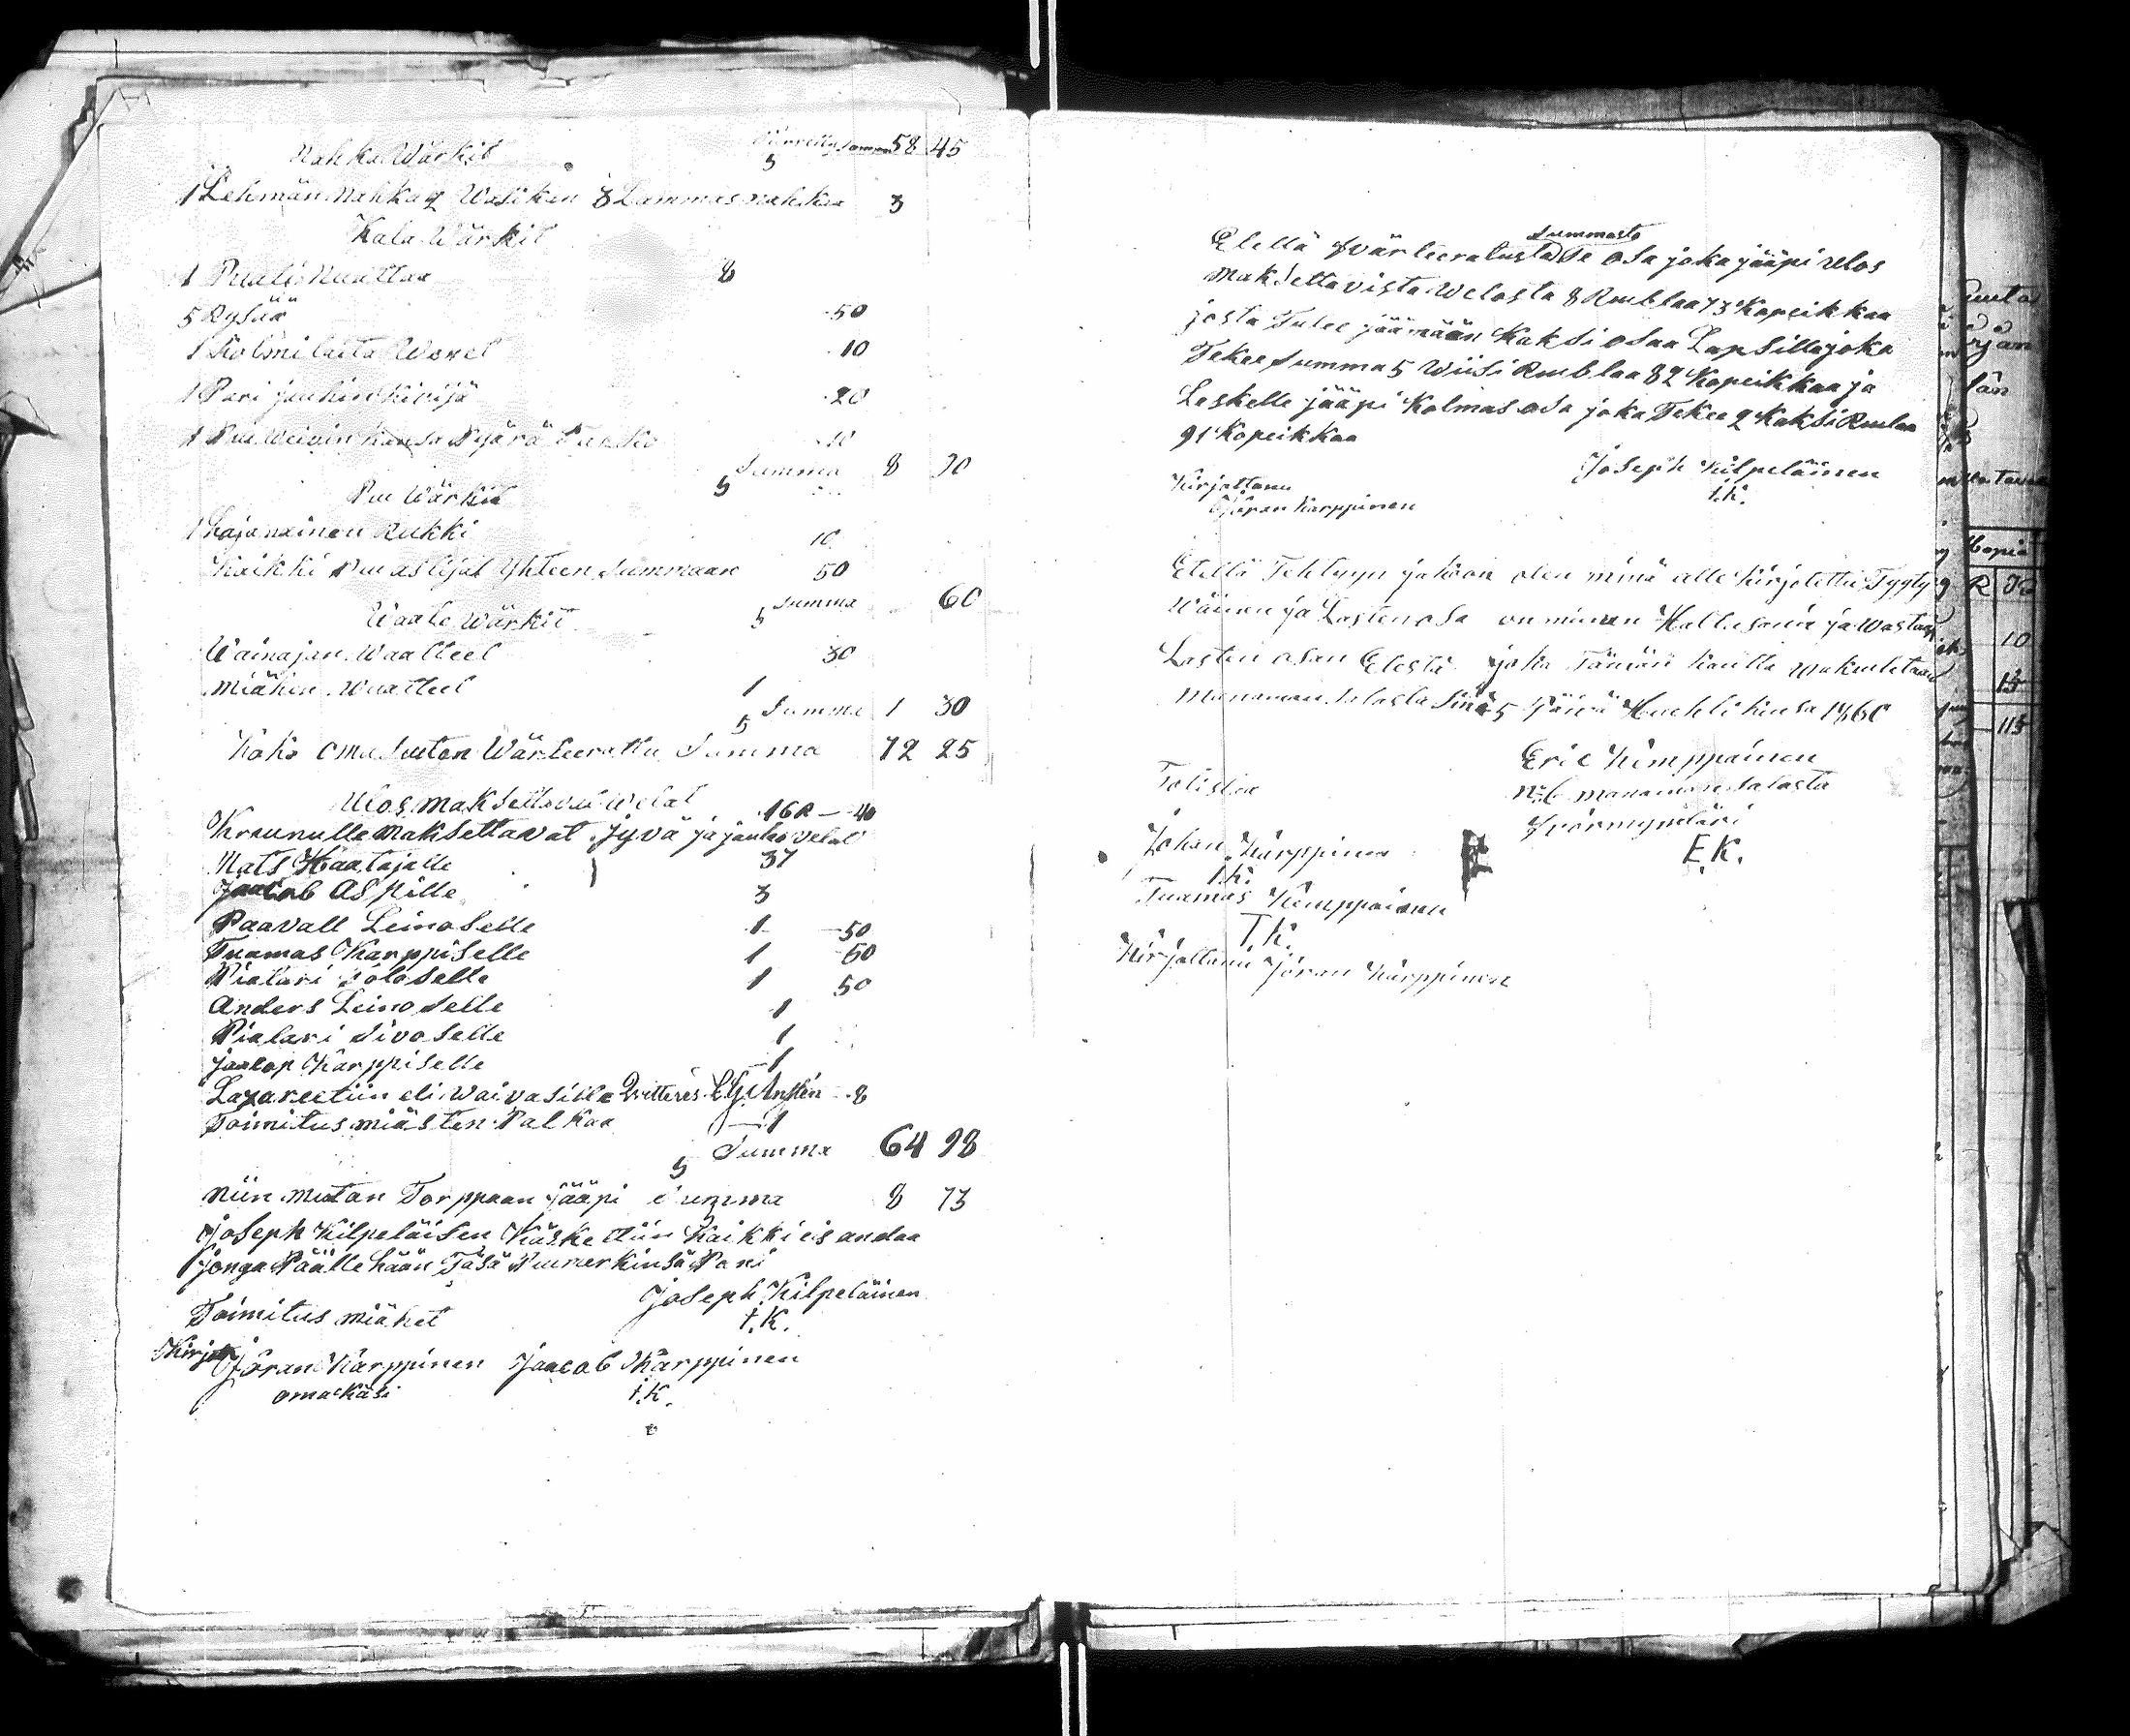 Nahka Wärkit Siirretty Summa 58 45
1 Lehmän Nahka 2 Wasikan 3 Lammasnahkaa 3
Kala Wärkit
1 Puoli Nuattaa 8
5 Rysüä 50
1 Kolmilaita Wenet 10
1 Pari jauhin Kivijä 20
10
Summa 8 90
Puu Wärkit
1 Lajanainen Rukki 10
Kaikki Puu astijat Yhteen Summaan 50
Summa 60
Waate Wärkit
Wainajan Waatteet 30
Miähen Waatteet 1
Summa 1 30
Koko Omasuuten Wärteerattu Summa 72 25
Ulos Maksettavat Welat
Kraunulle Maksettavat jyvä ja jauho velat 16R — 40
Mats Haatajalle 37
Jaacob Aspille 3
Paavall Leinoselle 1 50
Tuamas Karppiselle 1 60
Piatari Toloselle 1 50
Anders Leinoselle 1
Piatari Sivoselle 1
Jaacop Karppiselle 1
Lazareetiin eli Waivasille 8
Toimitus miästen Palkaa 1
Summa 64 98
Niin Mutan Torppaan Jääpi Summa 8 73
Joseph Kilpeläisen Käskettiin Kaikki eis andaa
jonga Päälle hään Täsä Puumerkinsä Pani
Joseph Kilpeläinen
I.K.
Toimitus miähet
Kirjot Jöran Karppinen Jaacob Karppinen
oma Käsi I.K.
Summasta
Etellä Wärteeratusta Te osa joka jääpi Ulos
Maksettavista Welosta 8 Rublaa 73 Kopeikkaa
josta Tulee jäämään Kaksi osaa Lapsille joka
Tekee Summa 5 Wiisi Rublaa 82 Kopeikkaa ja
Leskelle jääpi Kolmas osa joka Tekee 2 Kaksi Rulaa
91 Kopeikkaa
Joseph Kilpeläinen
I.K.
Kirjottanu
Jöran Karppinen
Etellä Tehtyyn jakoon olen minä alle Kirjotettu Tyyty
Wäinen ja Lasten osa on minun Hallusani ja Wastaan
Lasten osan Elestä joka Tämän kautta Wakuutetaan
Manamansalosta Sinä 5 Päivä Huchti kuusa 1860
Eric Kemppainen
No 6 Manamansalosta
E.K.
Totistaa
Johan Karppinen
I.K.
Tuamas Kemppainen
T.K.
Kirjottanu Jöran Karppinen